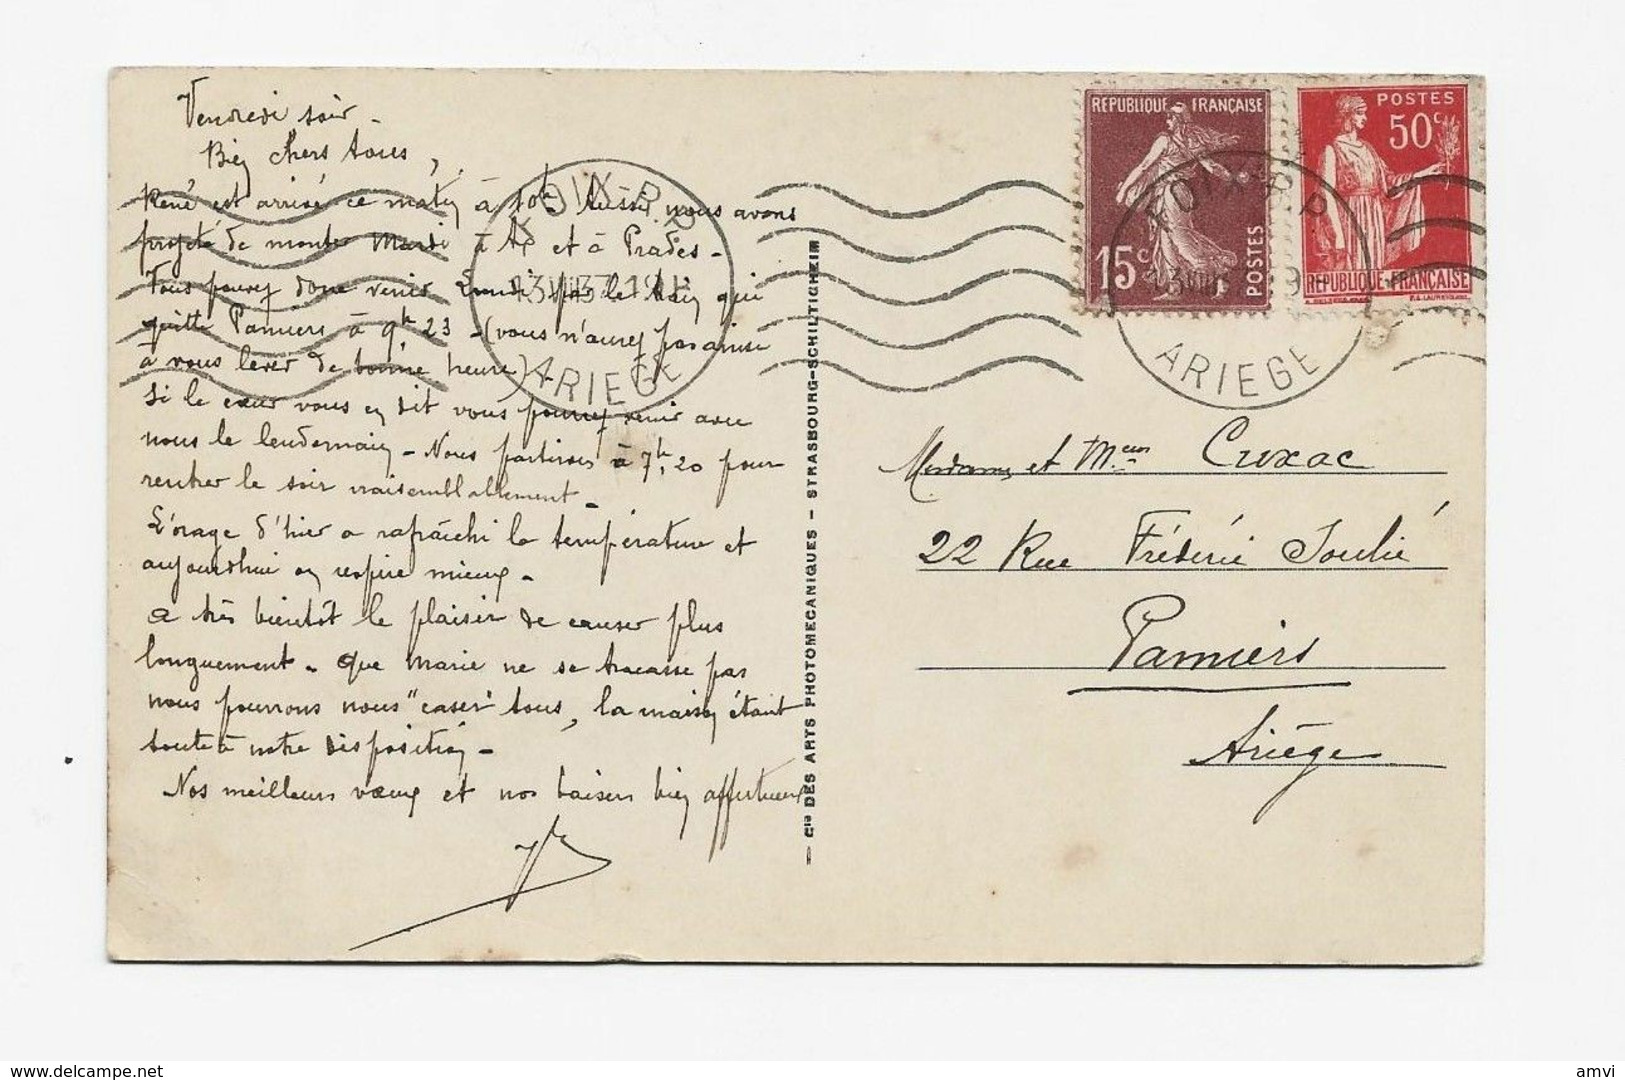 Vendredi soir -
Bien chers tous,
René est arrivé ce matin à 10h Aussi nous avons
projeté de monter Mardi à Ax et à Prades -
Vous pouvez donc venir Lundi par le train qui
quitte Pamiers à 9h 23 - (vous n'aurez pas ainsi
à vous lever de bonne heure) -
Si le cœur vous en dit vous pourrez venir avec
nous le lendemain - Nous partirons à 7h 20 pour
rentrer le soir vraisemblablement -
L'orage d'hier a rafraîchi la température et
aujourd'hui on respire mieux -
a très bientôt le plaisir de causer plus
longuement - que Marie ne se tracasse pas
nous pourrons nous "caser" tous, la maison étant
toute à notre disposition -
Nos meilleurs vœux et nos baisers bien affectueux
FOIX R.P.
13 VIII 37 19
ARIEGE
- Cie DES ARTS PHOTOMECANIQUES - STRASBOURG-SCHILTIGHEIM
REPUBLIQUE FRANÇAISE
15c
POSTES
POSTES
50c
REPUBLIQUE-FRANÇAISE
FOIX R.P.
ARIEGE
Mesdames et Mr Cuxac
22 Rue Fréderic Soulié
Pamiers
Ariège
amvi